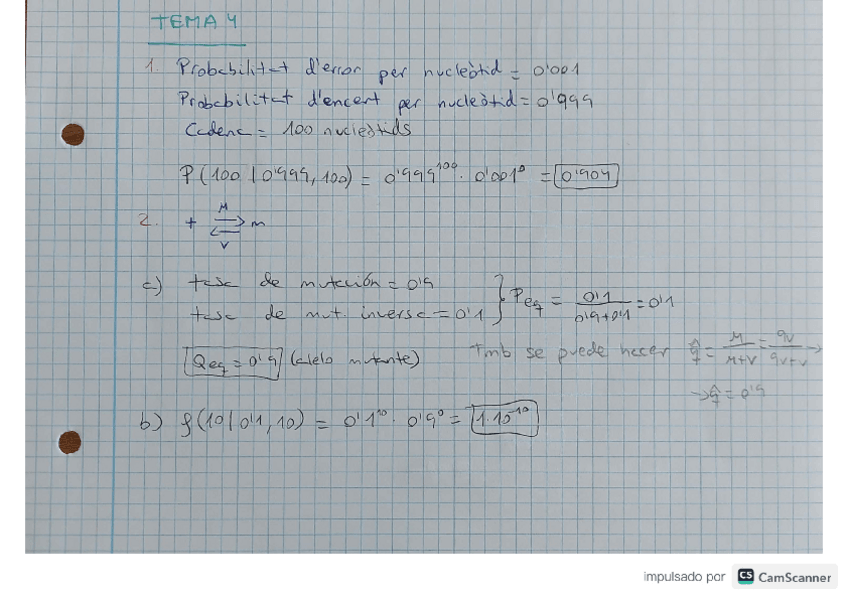 TEMA 4
1. Probabilitat d'error per nucleòtid = 0'001
Probabilitat d'encert per nucleòtid = 0'999
Cadena = 100 nucleòtids
P(100 | 0'999, 100) = 0'999¹⁰⁰ · 0'001⁰ = 0'904
2. + ⇄ m
μ
v
a) tasa de mutación = 0'9
tasa de mut. inversa = 0'1 } Peq = 0'1 / 0'9+0'1 = 0'1
Qeq = 0'9 (alelo mutante) Tmb se puede hacer q̂ = μ / μ+v = 9v / 9v+v →
→ q̂ = 0'9
b) f(10 | 0'1, 10) = 0'1¹⁰ · 0'9⁰ = 1·10⁻¹⁰
impulsado por CS CamScanner